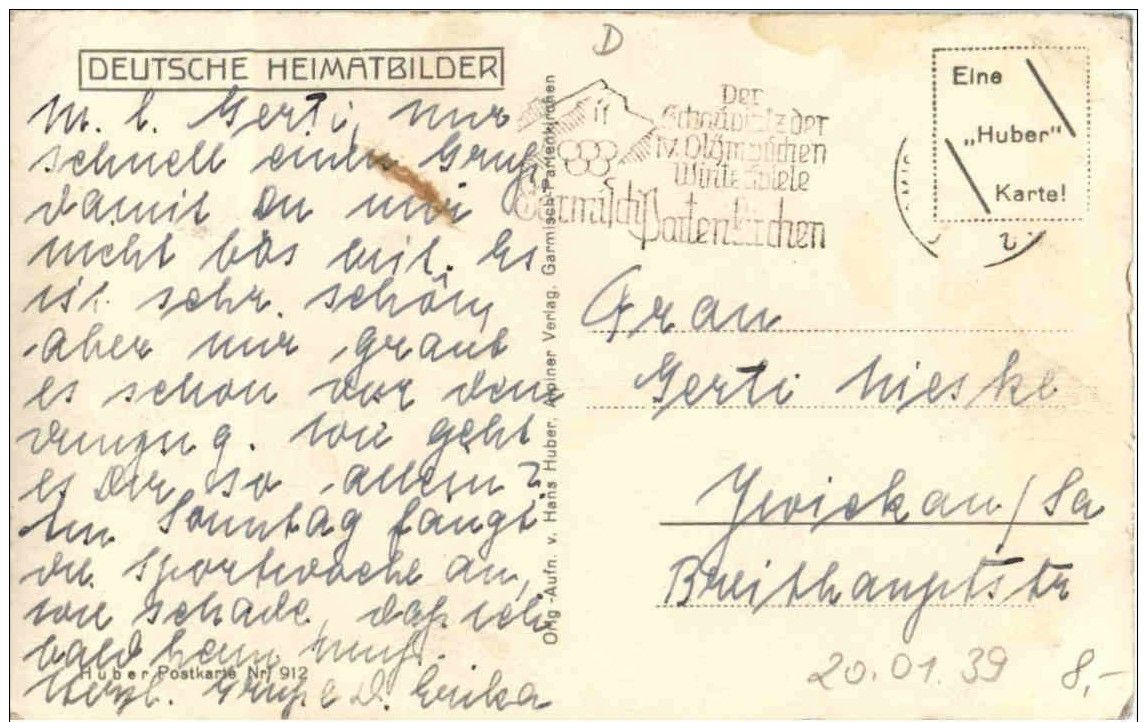 D
DEUTSCHE HEIMATBILDER
M. l. Gerti, nur
schnell einen Gruß,
damit Du mir
nicht bös bist. Es
ist sehr schön,
aber mir graut
es schon vor dem
Umzug. Wie geht
es Dir so allein?
Am Sonntag fängt
die Sportwoche an,
wie schade, daß ich
bald heim muß.
Herzl. Grüße D. Erika
Huber Postkarte Nr. 912
Orig.-Aufn. v. Hans Huber, Alpiner Verlag, Garmisch-Partenkirchen
Der
Schauplatz der
IV. Olympischen
Winterspiele
Garmisch-Partenkirchen
Eine
„Huber"
Karte!
Frau
Gerti Nieske
Zwickau/Sa
Breithauptstr
20.01.39
8,-